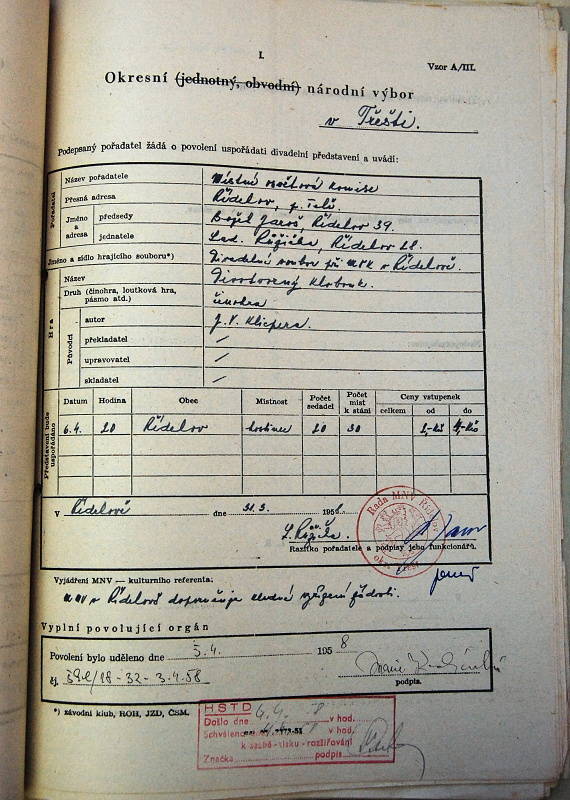 I.
Vzor A/III.
Okresní (jednotný, obvodní) národní výbor
v Třešti.
Podepsaný pořadatel žádá o povolení uspořádati divadelní představení a uvádí:
Pořadatel
Název pořadatele Místní osvětová komise
Přesná adresa Řídelov, p. Telč.
Jméno a adresa
předsedy Jaroš, Řídelov 39.
jednatele Lad. Růžička, Řídelov 28.
Jméno a sídlo hrajícího souboru*) Divadelní soubor při v Řídelově.
Hra
Název Divotvorný klobouk.
Druh (činohra, loutková hra, pásmo atd.) činohra
Původci
autor J. V. Klicpera.
překladatel /
upravovatel /
skladatel /
Představení bude uspořádáno
Datum Hodina Obec Místnost Počet sedadel Počet míst k stání Ceny vstupenek
celkem od do
6.4. 20 Řídelov hostinec 20 30 2,-Kčs 4,-Kčs
V Řídelově dne 31.3. 1958.
Rada MNV Řídelov
L. Růžička.
Razítko pořadatele a podpisy jeho funkcionářů.
Vyjádření MNV — kulturního referenta:
MNV v Řídelově doporučuje kladné vyřízení žádosti.
Vyplní povolující orgán
Povolení bylo uděleno dne 3.4. 1958
čj.
podpis.
*) závodní klub, ROH, JZD, ČSM.
H.STD
Došlo dne v hod.
Schváleno v hod.
k sazbě - tisku - rozšiřování
Značka podpis